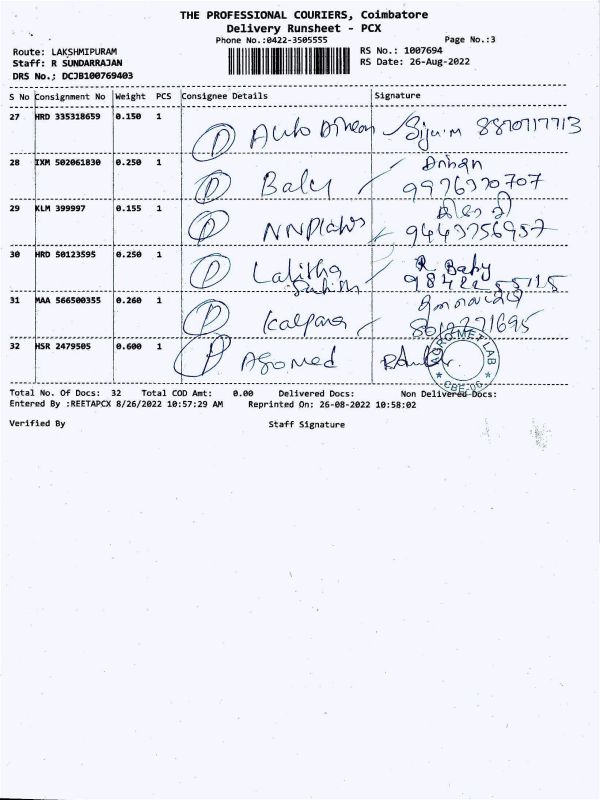 THE PROFESSIONAL COURIERS, Coimbatore
Delivery Runsheet - PCX
Phone No.:0422-3505555 Page No.:3
Route: LAKSHMIPURAM RS No.: 1007694
Staff: R SUNDARRAJAN RS Date: 26-Aug-2022
DRS No.; DCJB100769403
S No Consignment No Weight PCS Consignee Details Signature
27 HRD 335318659 0.150 1 D Auto 8870717713
28 IXM 502061830 0.250 1 D Balu
9976370707
29 KLM 399997 0.155 1 D
9443756957
30 HRD 50123595 0.250 1 D Lalitha R Baby
31 MAA 566500355 0.260 1 D Kalpana
32 HSR 2479505 0.600 1 D Agromed
AGROMET LAB
CBE-06
Total No. Of Docs: 32 Total COD Amt: 0.00 Delivered Docs: Non Delivered Docs:
Entered By :REETAPCX 8/26/2022 10:57:29 AM Reprinted On: 26-08-2022 10:58:02
Verified By Staff Signature